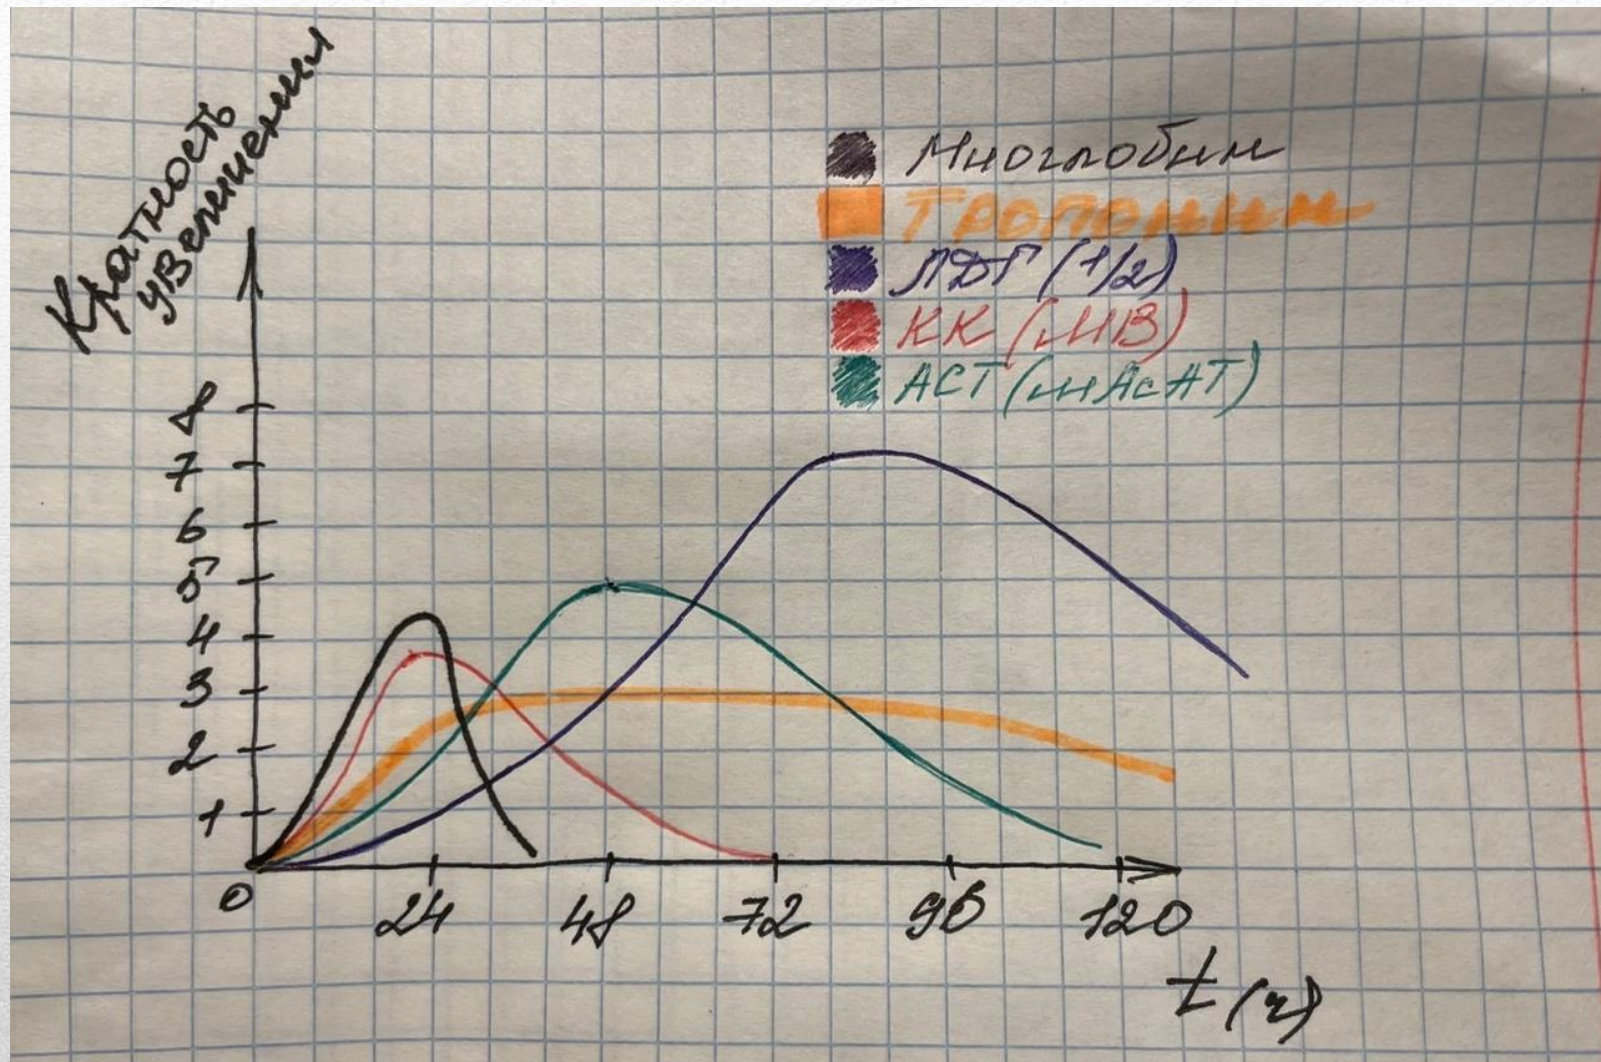 Кратность
увеличения
Миоглобин
Тропонин
ЛДГ (1/2)
КК (МВ)
АСТ (мАсАТ)
8
7
6
5
4
3
2
1
0
24
48
72
96
120
t (ч)